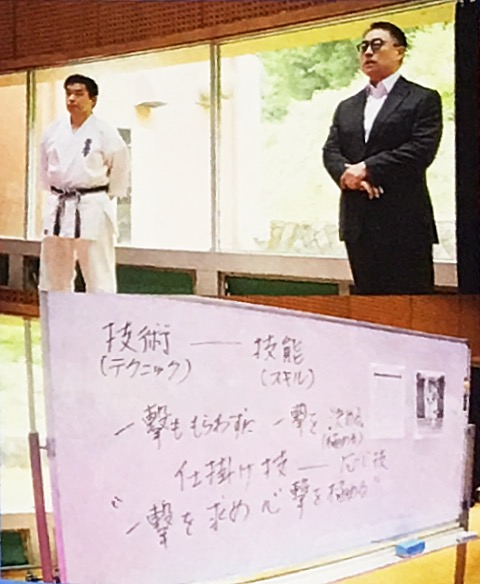 技術 ― 技能
(テクニック) (スキル)
一撃ももらわずに 一撃を 決める
(極める)
仕掛け技 ― 応じ技
"一撃を求め 一撃を極める"